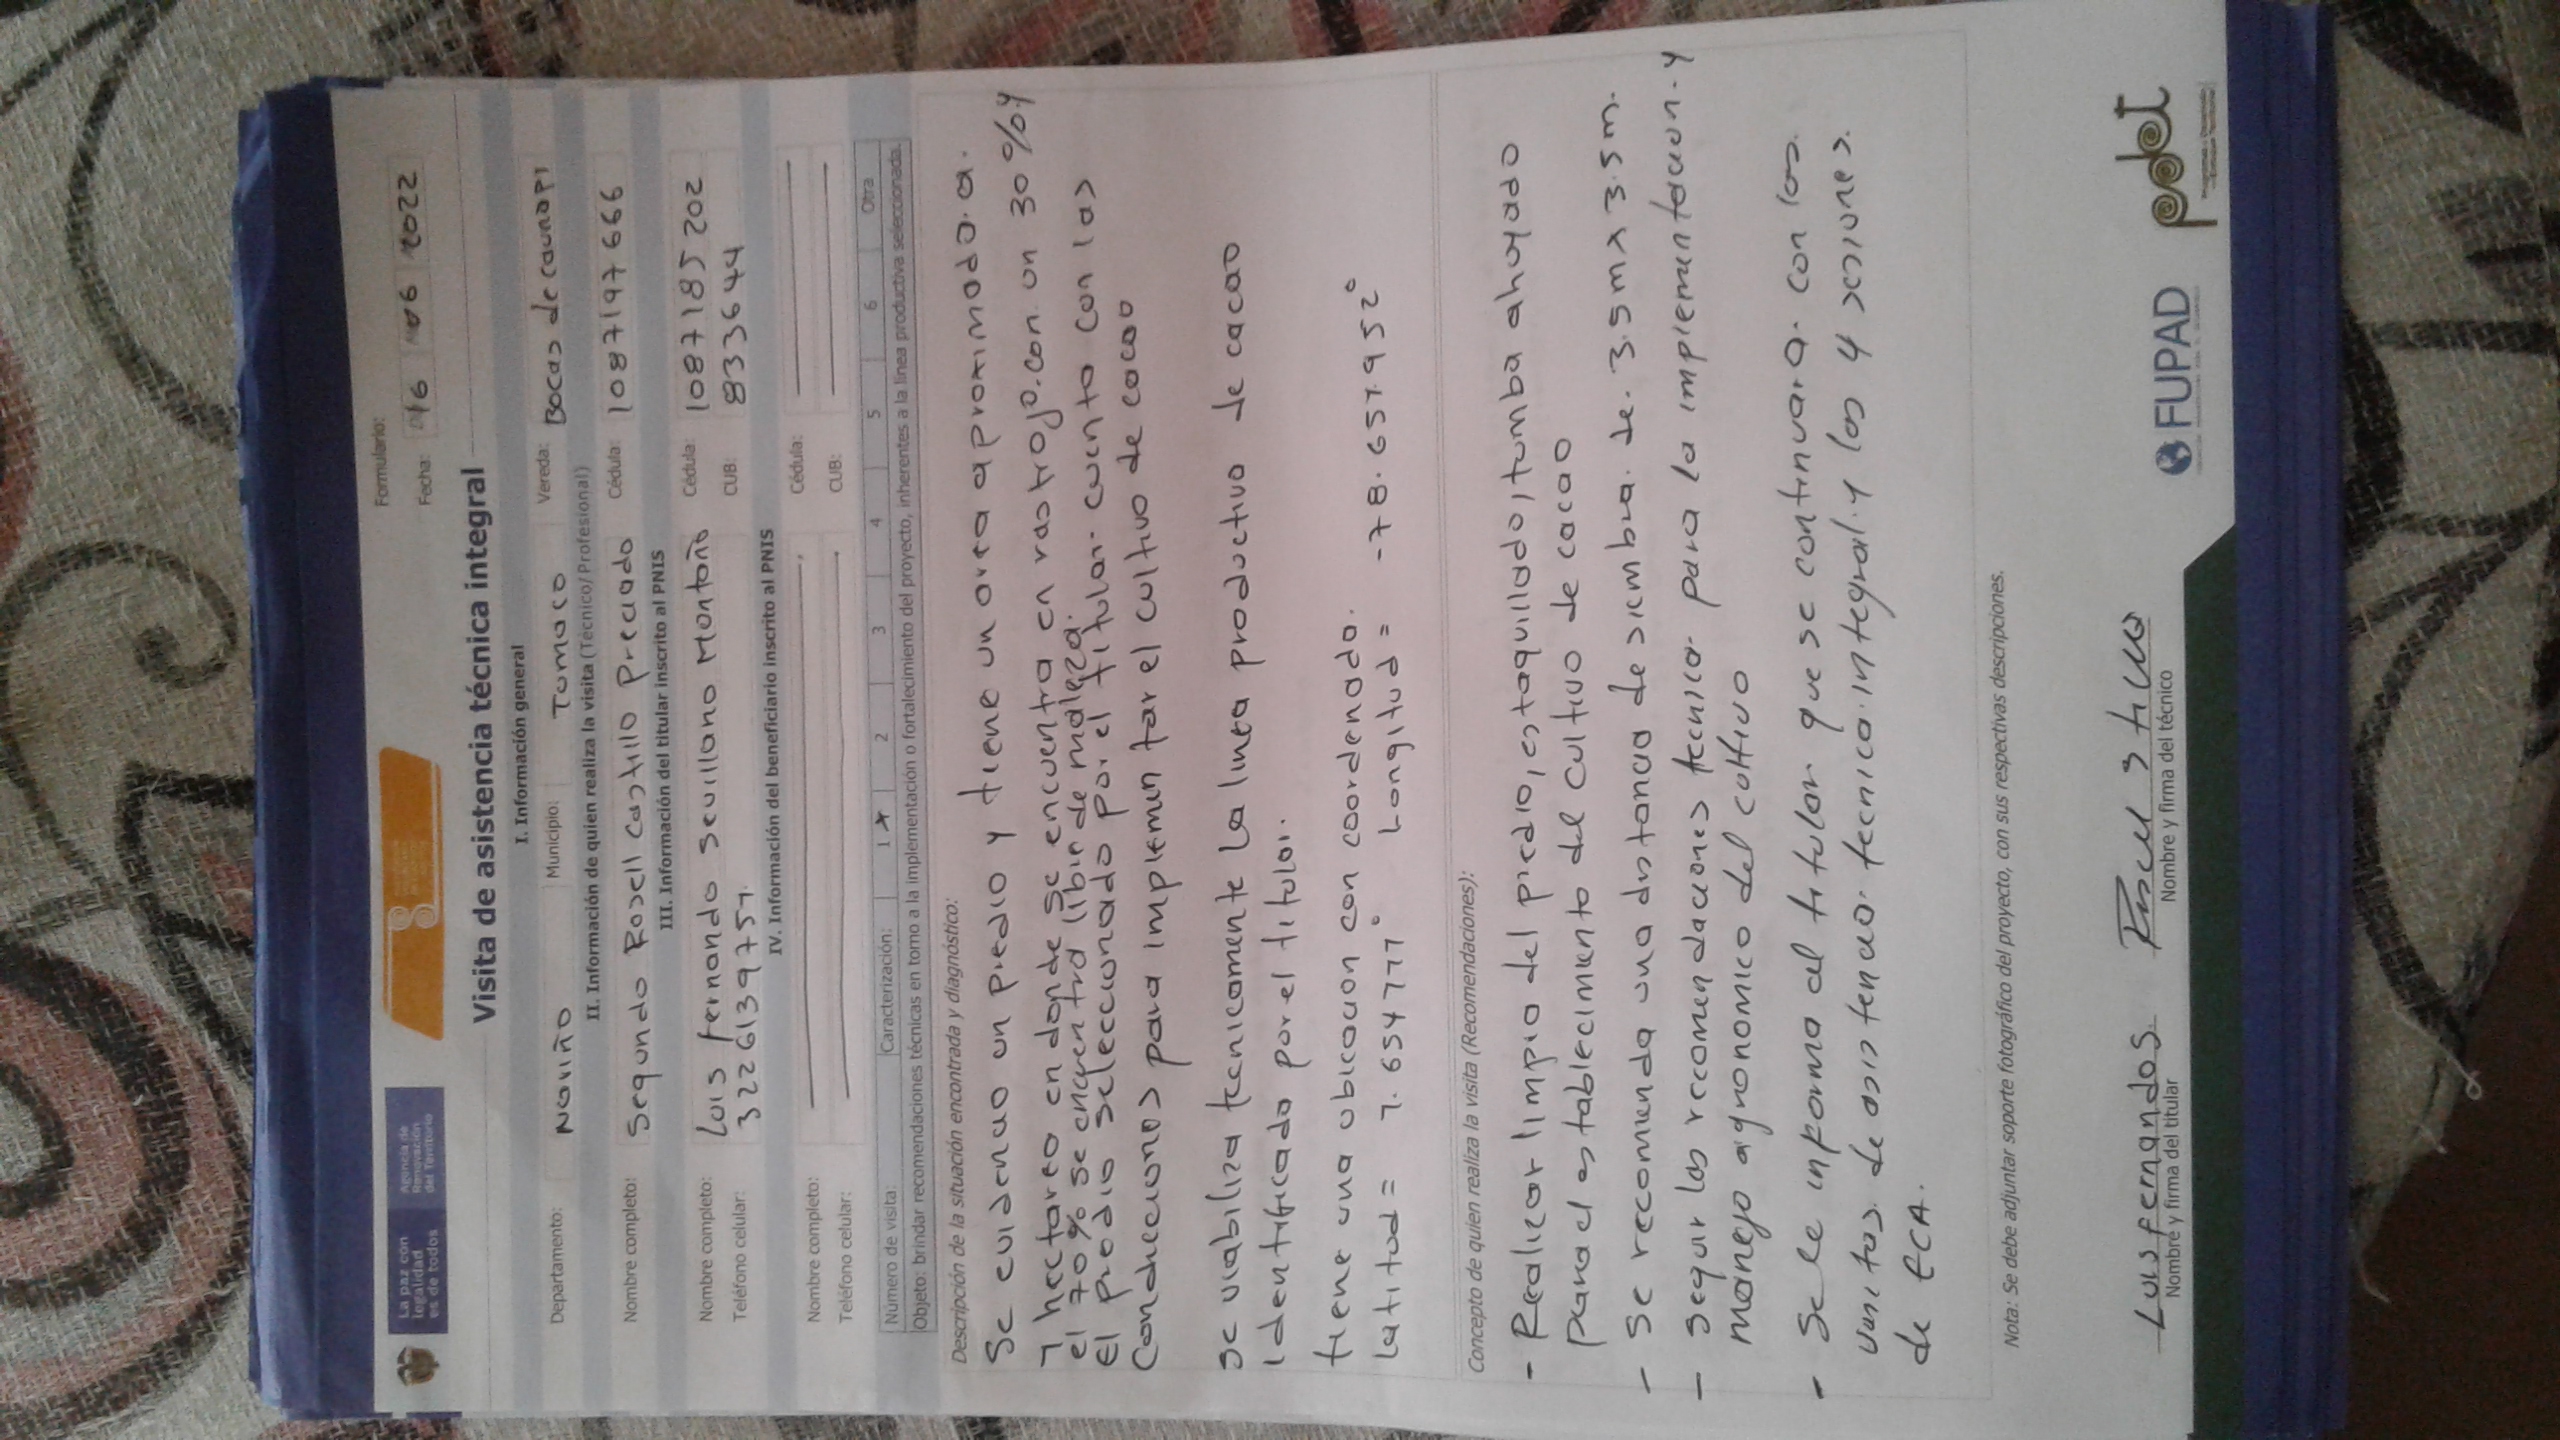 La paz con
legalidad
es de todos
Agencia de
Renovación
del Territorio
Formulario:
Fecha: 16 06 2022
Visita de asistencia técnica integral
I. Información general
Departamento: Nariño Municipio: Tumaco Vereda: Bocas de caunapi
II. Información de quien realiza la visita (Técnico/Profesional)
Nombre completo: Segundo Rosell Castillo Preciado Cédula: 1087197666
III. Información del titular inscrito al PNIS
Nombre completo: Luis fernando Sevillano Montaño Cédula: 1087185202
Teléfono celular: 3226139757. CUB: 833644
IV. Información del beneficiario inscrito al PNIS
Nombre completo: Cédula:
Teléfono celular: CUB:
Número de visita: Caracterización: 1 x 2 3 4 5 6 Otra
Objeto: brindar recomendaciones técnicas en torno a la implementación o fortalecimiento del proyecto, inherentes a la línea productiva seleccionada.
Descripción de la situación encontrada y diagnóstico:
Se evidencio un predio y tiene un area aproximada. a.
1 hectarea en donde se encuentra en rastrojo. con. un 30% y
el 70% se encuentra libre de maleza.
El predio seleccionado por el titular. cuenta con las
Condiciones para implementar el cultivo de cacao
se viabiliza tecnicamente la linea productivo de cacao
identificado por el titular.
tiene una ubicacion con coordenada.
Latitud = 1.6547771° Longitud = -78.6571952°
Concepto de quien realiza la visita (Recomendaciones):
- Realizar limpia del predio, estaquillado, tumba ahoyado
para el establecimiento del cultivo de cacao
- Se recomienda una distancia de siembra. de. 3.5m x 3.5m.
- seguir las recomendaciones tecnica para la implementacion. y
manejo agronomico del cultivo
- Se le informa al titular que se continuara. con las.
visitas. de asistencia. tecnica. integral. y las 4 sesiones.
de ECA.
Nota: Se debe adjuntar soporte fotográfico del proyecto, con sus respectivas descripciones.
Luis fernandos.
Nombre y firma del titular
Nombre y firma del técnico
FUPAD
pdet